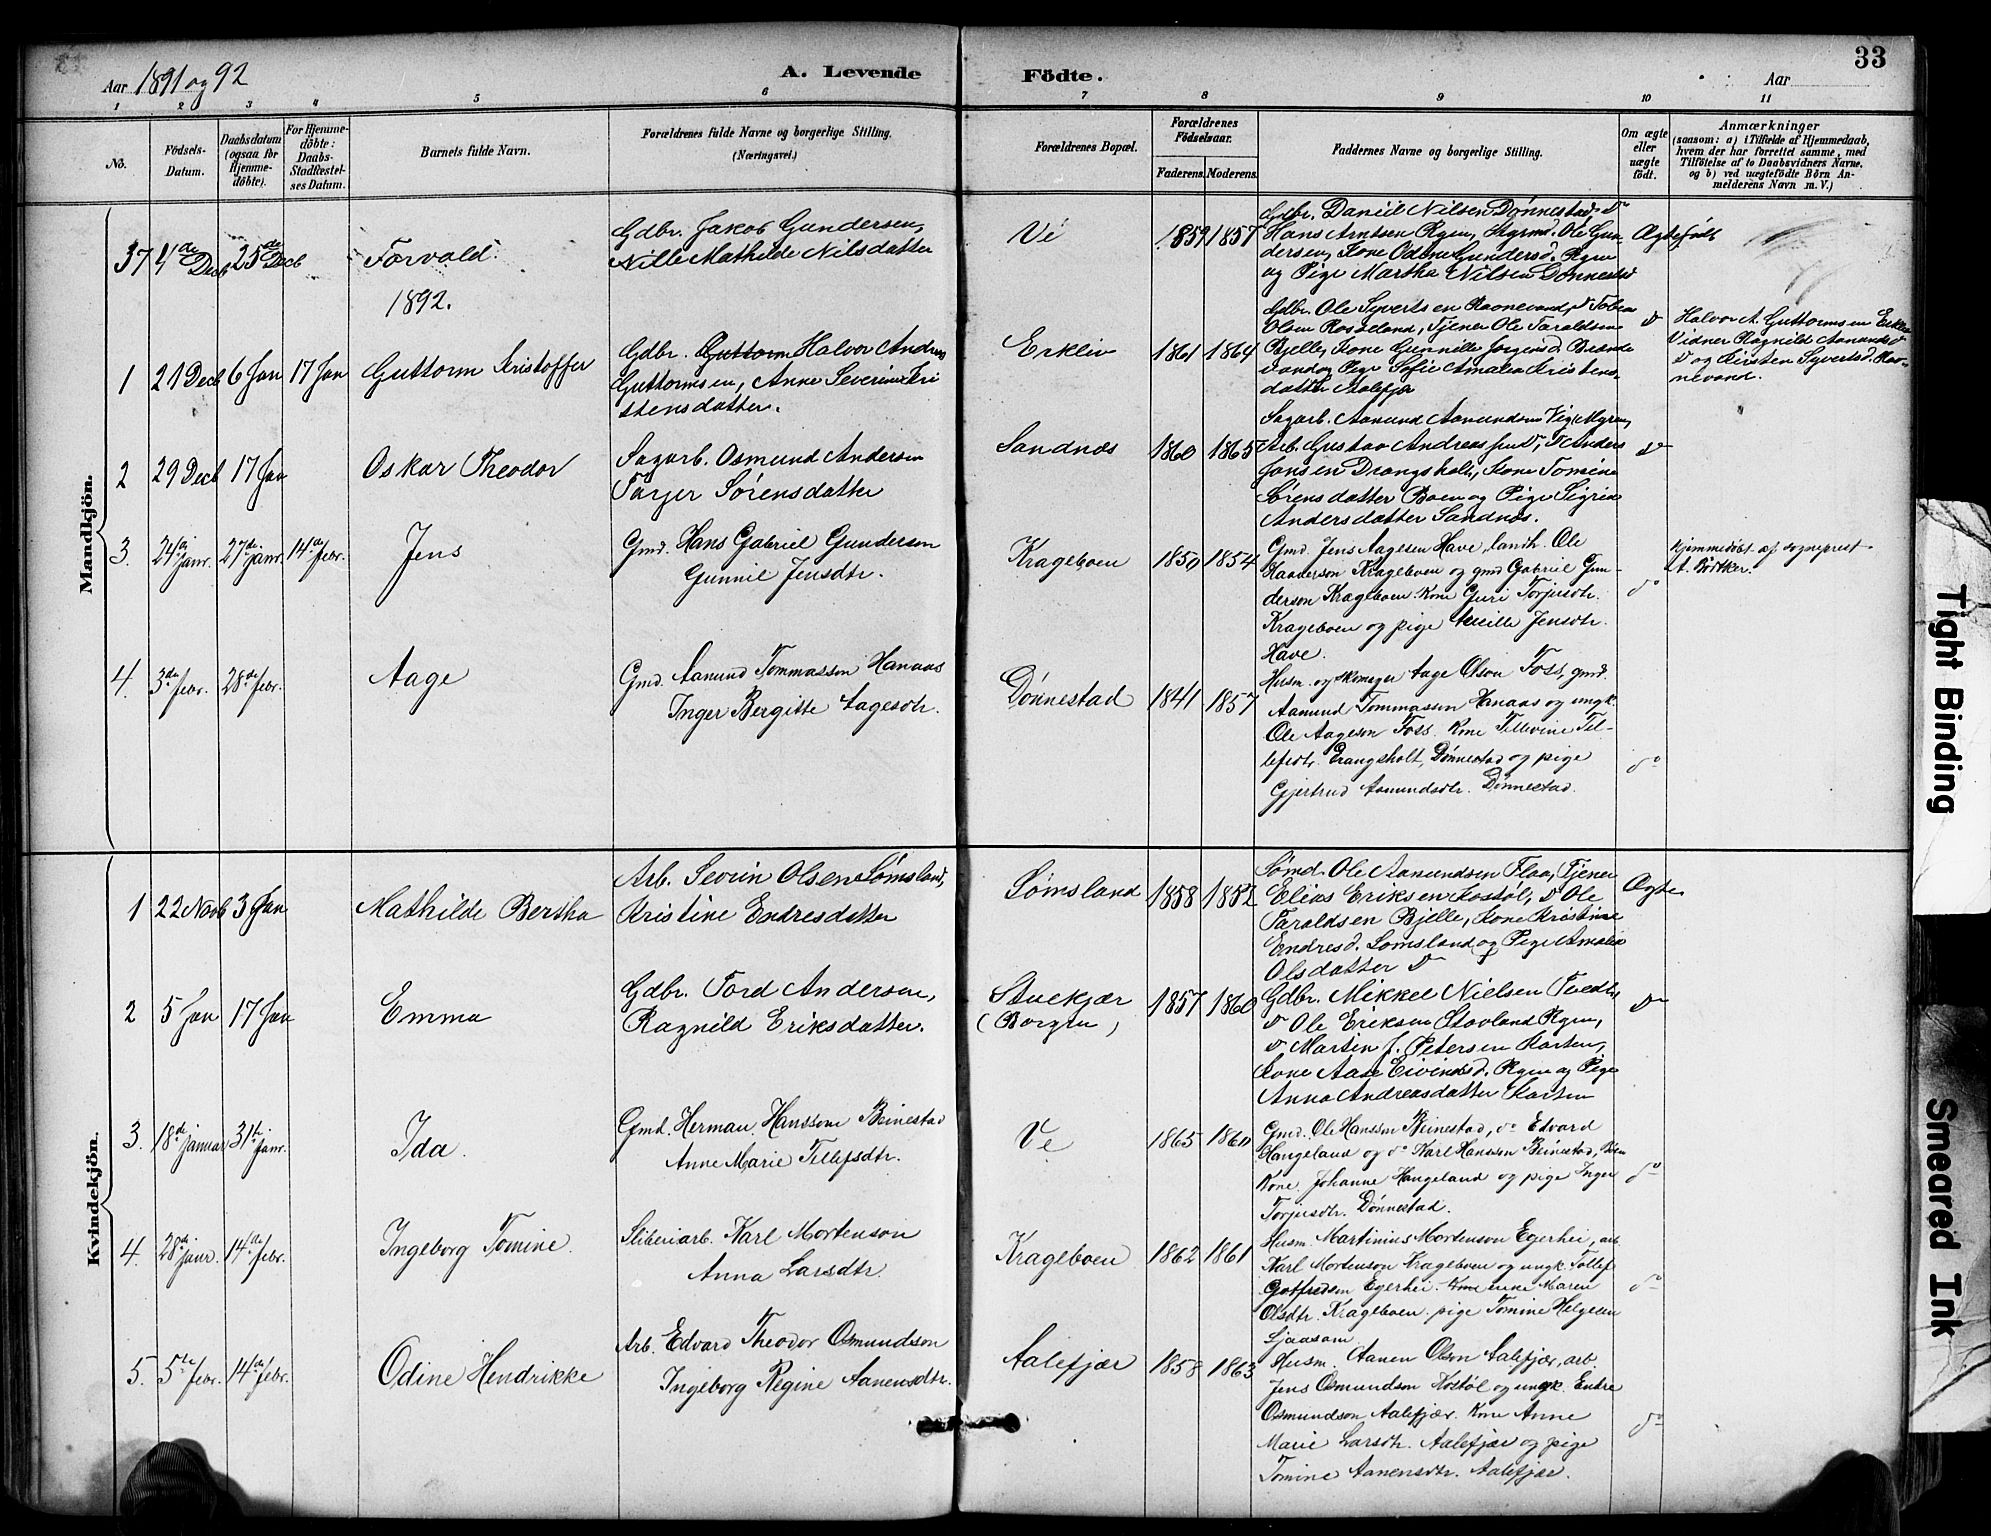 33
Aar 1891 og 92
A. Levende Födte.
Aar
1 2 3 4 5 6 7 8 9 10 11
No.
Födsels-Datum.
Daabsdatum (ogsaa for Hjemme-döbte).
For Hjemme-döbte: Daabs-Stadfæstel-ses Datum.
Barnets fulde Navn.
Forældrenes fulde Navne og borgerlige Stilling. (Næringsvei.)
Forældrenes Bopæl.
Forældrenes Födselsaar.
Faderens. Moderens.
Faddernes Navne og borgerlige Stilling.
Om ægte eller uægte födt.
Anmærkninger
(saasom: a) i Tilfælde af Hjemmedaab, hvem der har forrettet samme, med Tilföielse af to Daabsvidners Navne, og b) ved uægtefödte Börn An-melderens Navn m. V.)
Mandkjön.
37 4de Decb 25de Decb
Torvald
Gdbr. Jakob Gundersen,
Nille Mathilde Nilsdatter
Ve
1859 1857
Gdbr. Daniel Nilsen Dønnestad, do
Hans Arntsen Rgen, Styrmd. Ole Gun-
dersen, Kone Odine Gundersd. Rgen
og Pige Martha Nilsen Dønnestad
Ægtefødt
1892.
1 21 Decb 6 Jan 17 Jan
Guttorm Kristoffer
Gdbr. Guttorm Halvor Andreas
Guttormsen, Anne Severine Kri
stensdatter.
Erkliv
1861 1864
Gdbr. Ole Syvertsen Ravnevand, do Tobias
Olsen Rosseland, Tjener Ole Taraldsen
Bjelle, Kone Gunnille Jørgensd. Brænde
vand og Pige Sofie Amalia Kristens-
datter Aalefjær
do
Halvor A. Guttormsen Erkliv
Vidner Ragnild Aanundsd
do og Kirsten Syvertsd. Rav-
nevand.
2 29 Decb 17 Jan
Oskar Theodor
Sagarb. Osmund Andersen
Tarjer Sørensdatter
Sandnæs
1860 1865
Sagarb. Aanund Aanundsen Vig, Myren,
Arb. Gustav Andreassen do, do Anders
Jansen Drangsholt, Kone Tomine
Sørensdatter Boen og Pige Sigrid
Andersdatter Sandnæs.
do
3. 24de janr. 27de janr. 14de febr.
Jens
Gmd. Hans Gabriel Gunderson
Gunnil Jensdtr.
Krageboen
1850 1854
Gmd. Jens Aagesen Have, landh. Ole
Haaderson Krageboen og gmd Gabriel Gun-
derson Krageboen. Kone Guri Torjusdtr.
Krageboen og pige Jensdtr.
Have.
do
Hjemmedøbt af sogneprest
A. Bødtker.
4. 3de febr. 28de febr.
Aage
Gmd. Aanund Tommasson Hanaas
Inger Bergitte Aagesdtr.
Dønnestad
1841 1857
Husm. og skomager Aage Olson Foss, gmd.
Aanund Tommassen Hanaas og ungk.
Ole Aageson Foss. Kone Tellevine Tel-
lefsdtr. Drangsholt, Dønnestad og pige
Gjertrud Aanundsdtr. Dønnestad.
do
Kvindekjön.
1 22 Novb 3 Jan
Mathilde Bertha
Arb. Sevrin Olsen Sømsland,
Kristine Endresdatter
Sømsland
1858 1852
Sømd. Ole Aanundsen Flaa, Tjener
Elias Eriksen Kostøl, do Ole
Taraldsen Bjelle, Kone Kristine
Endresd. Sømsland og Pige Amalia
Olsdatter do
Ægte
2 5 Jan 17 Jan
Emma
Gdbr. Tord Andersen,
Ragnild Eriksdatter.
Stuekjær
(Borgen)
1857 1860
Gdbr. Mikkel Nielsen Tvedt,
do Ole Eriksen Stovland Rgen,
do Martin J. Petersen Karten,
Kone Aase Eivindsd. Rgen og Pige
Anna Andreasdatter Karten
do
3. 18de januar 31te janr.
Ida.
Gmd. Herman Hansson Beinestad
Anne Marie Tellefsdtr.
Ve
1865 1860
Gmd. Ole Hansson Beinestad, do Edvard
Hangeland og do Karl Hansson Beinestad, Boen
Kone Johanne Hangeland og pige Inger
Torjusdtr. Dønnestad.
do
4. 28de janr. 14de febr.
Ingeborg Tomine.
Sliberiarb. Karl Mortenson
Anna Larsdtr.
Krageboen
1862 1861
Husm. Martinius Mortenson Egerhei, arb.
Karl Mortenson Krageboen og ungk. Tollef
Gotfredson Egerhei. Kone enke Maren
Olsdtr. Krageboen. pige Tomine Helgesen
Ljaasam.
do
5. 5te febr. 14de febr.
Odine Hendrikke
Arb. Edvard Theodor Osmundson
Ingeborg Regine Aanensdtr.
Aalefjær
1858 1863
Husm. Aanen Olson Aalefjær, arb.
Jens Osmundson Kostøl og ungk. Endre
Osmundson Aalefjær. Kone Anne
Marie Larsdtr. Aalefjær og pige
Tomine Aanensdtr. Aalefjær.
do
Tight Binding
Smeared Ink